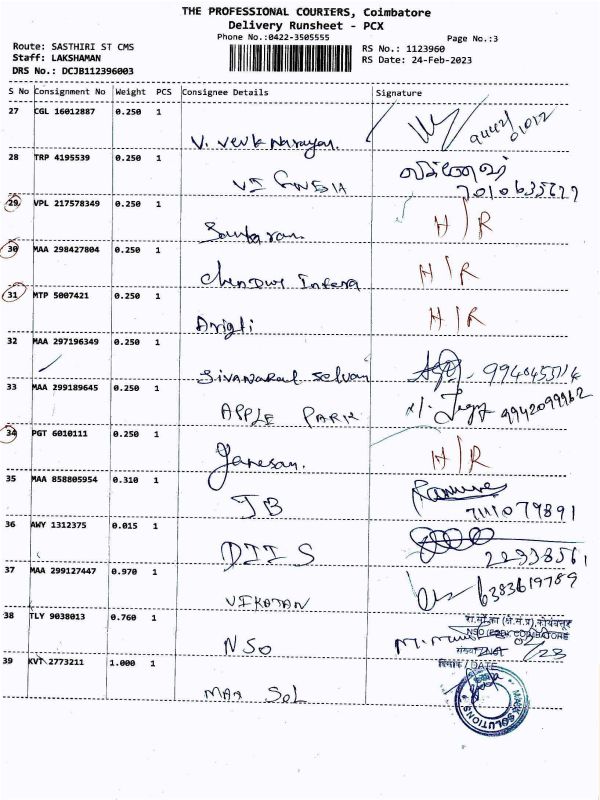 THE PROFESSIONAL COURIERS, Coimbatore
Delivery Runsheet - PCX
Phone No.:0422-3505555
Page No.:3
Route: SASTHIRI ST CMS
RS No.: 1123960
Staff: LAKSHAMAN
RS Date: 24-Feb-2023
DRS No.: DCJB112396003
S No Consignment No Weight PCS Consignee Details Signature
27 CGL 16012887 0.250 1
94421 01012
28 TRP 4195539 0.250 1
29 VPL 217578349 0.250 1
H/R
30 MAA 298427804 0.250 1
Chendur Infera H/R
31 MTP 5007421 0.250 1
H/R
32 MAA 297196349 0.250 1
33 MAA 299189645 0.250 1
APPLE PARK 9942099962
34 PGT 6010111 0.250 1
Ganesan. H/R
35 MAA 858805954 0.310 1
JB 7111079891
36 AWY 1312375 0.015 1
37 MAA 299127447 0.970 1
VIKATAN 6383619789
38 TLY 9038013 0.760 1
NSO
39 KVT 2773211 1.000 1
MAA SOL